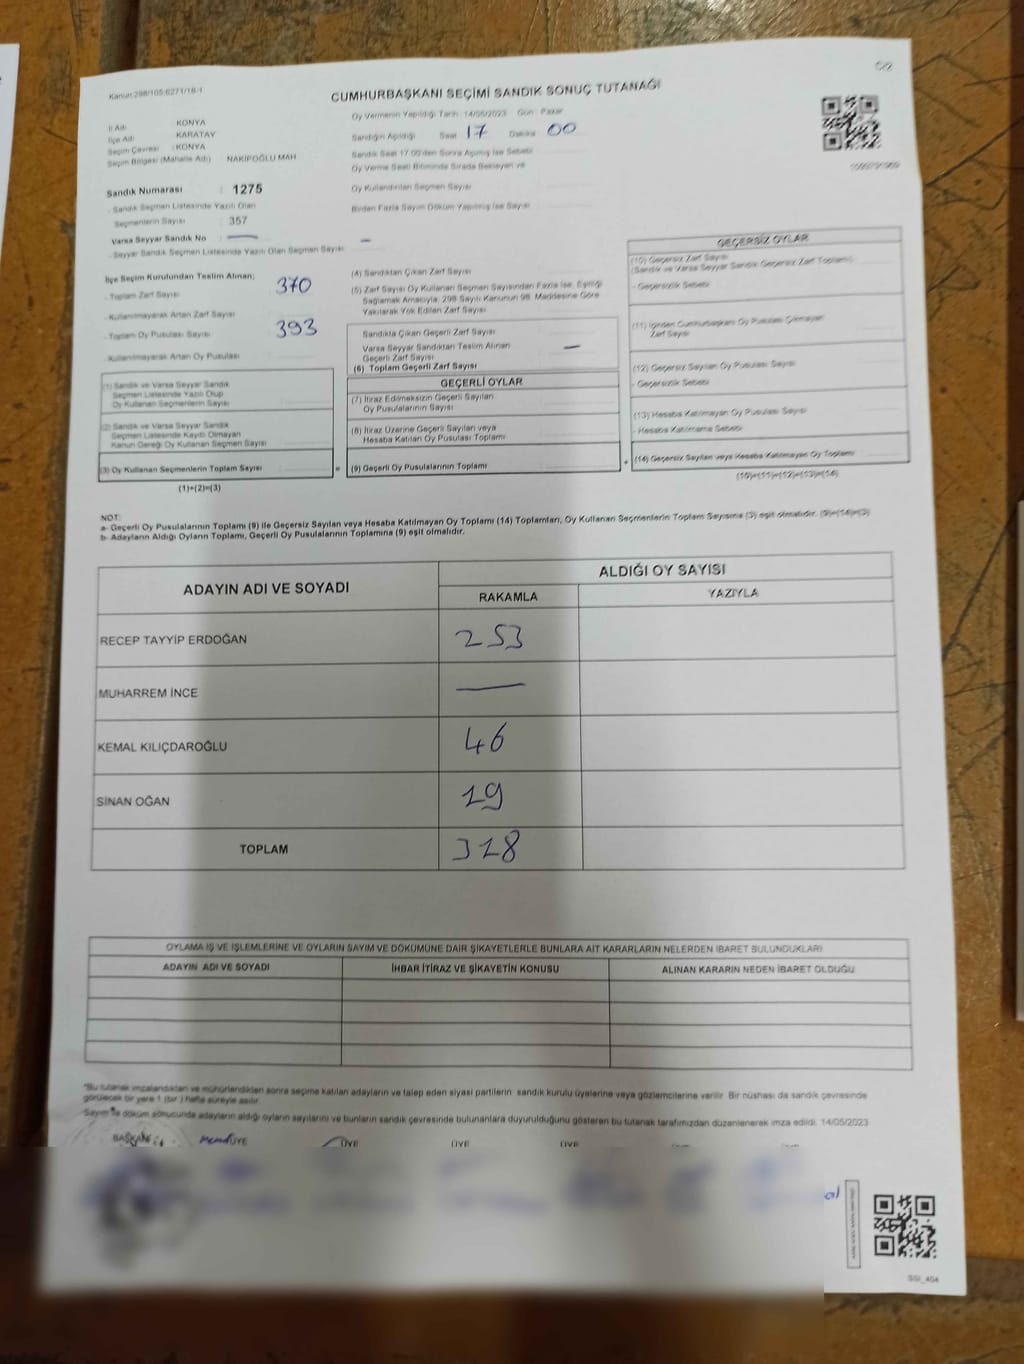 Kanun:298/105;6271/18-1
CUMHURBAŞKANI SEÇİMİ SANDIK SONUÇ TUTANAĞI
İl Adı : KONYA
İlçe Adı : KARATAY
Seçim Çevresi : KONYA
Seçim Bölgesi (Mahalle Adı) : NAKİPOĞLU MAH
Oy Vermenin Yapıldığı Tarih : 14/05/2023 Gün : Pazar
Sandığın Açıldığı Saat 17 Dakika 00
Sandık Saat 17:00'den Sonra Açılmış İse Sebebi
Oy Verme Saati Bitiminde Sırada Bekleyen ve
Oy Kullandırılan Seçmen Sayısı
Birden Fazla Sayım Döküm Yapılmış İse Sayısı
Sandık Numarası : 1275
- Sandık Seçmen Listesinde Yazılı Olan
Seçmenlerin Sayısı : 357
Varsa Seyyar Sandık No : —
- Seyyar Sandık Seçmen Listesinde Yazılı Olan Seçmen Sayısı : —
İlçe Seçim Kurulundan Teslim Alınan;
- Toplam Zarf Sayısı 370
- Kullanılmayarak Artan Zarf Sayısı
- Toplam Oy Pusulası Sayısı 393
- Kullanılmayarak Artan Oy Pusulası
(1) Sandık ve Varsa Seyyar Sandık
Seçmen Listesinde Yazılı Olup
Oy Kullanan Seçmenlerin Sayısı
(2) Sandık ve Varsa Seyyar Sandık
Seçmen Listesinde Kayıtlı Olmayan
Kanun Gereği Oy Kullanan Seçmen Sayısı
(3) Oy Kullanan Seçmenlerin Toplam Sayısı
(1)+(2)=(3)
(4) Sandıktan Çıkan Zarf Sayısı
(5) Zarf Sayısı Oy Kullanan Seçmen Sayısından Fazla İse, Eşitliği
Sağlamak Amacıyla, 298 Sayılı Kanunun 98. Maddesine Göre
Yakılarak Yok Edilen Zarf Sayısı
Sandıkta Çıkan Geçerli Zarf Sayısı
Varsa Seyyar Sandıktan Teslim Alınan
Geçerli Zarf Sayısı —
(6) Toplam Geçerli Zarf Sayısı
GEÇERLİ OYLAR
(7) İtiraz Edilmeksizin Geçerli Sayılan
Oy Pusulalarının Sayısı
(8) İtiraz Üzerine Geçerli Sayılan veya
Hesaba Katılan Oy Pusulası Toplamı
= (9) Geçerli Oy Pusulalarının Toplamı
GEÇERSİZ OYLAR
(10) Geçersiz Zarf Sayısı
(Sandık ve Varsa Seyyar Sandık Geçersiz Zarf Toplamı)
- Geçersizlik Sebebi
(11) İçinden Cumhurbaşkanı Oy Pusulası Çıkmayan
Zarf Sayısı
(12) Geçersiz Sayılan Oy Pusulası Sayısı
- Geçersizlik Sebebi
(13) Hesaba Katılmayan Oy Pusulası Sayısı
- Hesaba Katılmama Sebebi
+ (14) Geçersiz Sayılan veya Hesaba Katılmayan Oy Toplamı
(10)+(11)+(12)+(13)=(14)
NOT:
a- Geçerli Oy Pusulalarının Toplamı (9) ile Geçersiz Sayılan veya Hesaba Katılmayan Oy Toplamı (14) Toplamları, Oy Kullanan Seçmenlerin Toplam Sayısına (3) eşit olmalıdır. (9)+(14)=(3)
b- Adayların Aldığı Oyların Toplamı, Geçerli Oy Pusulalarının Toplamına (9) eşit olmalıdır.
ADAYIN ADI VE SOYADI
ALDIĞI OY SAYISI
RAKAMLA YAZIYLA
RECEP TAYYİP ERDOĞAN 253
MUHARREM İNCE —
KEMAL KILIÇDAROĞLU 46
SİNAN OĞAN 19
TOPLAM 318
OYLAMA İŞ VE İŞLEMLERİNE VE OYLARIN SAYIM VE DÖKÜMÜNE DAİR ŞİKAYETLERLE BUNLARA AİT KARARLARIN NELERDEN İBARET BULUNDUKLARI
ADAYIN ADI VE SOYADI İHBAR İTİRAZ VE ŞİKAYETİN KONUSU ALINAN KARARIN NEDEN İBARET OLDUĞU
*Bu tutanak imzalandıktan ve mühürlendikten sonra seçime katılan adayların ve talep eden siyasi partilerin sandık kurulu üyelerine veya gözlemcilerine verilir. Bir nüshası da sandık çevresinde
görülecek bir yere 1 (bir ) hafta süreyle asılır.
Sayım ve döküm sonucunda adayların aldığı oyların sayılarını ve bunların sandık çevresinde bulunanlara duyurulduğunu gösteren bu tutanak tarafımızdan düzenlenerek imza edildi. 14/05/2023
BAŞKAN ÜYE ÜYE ÜYE ÜYE
SSI_404